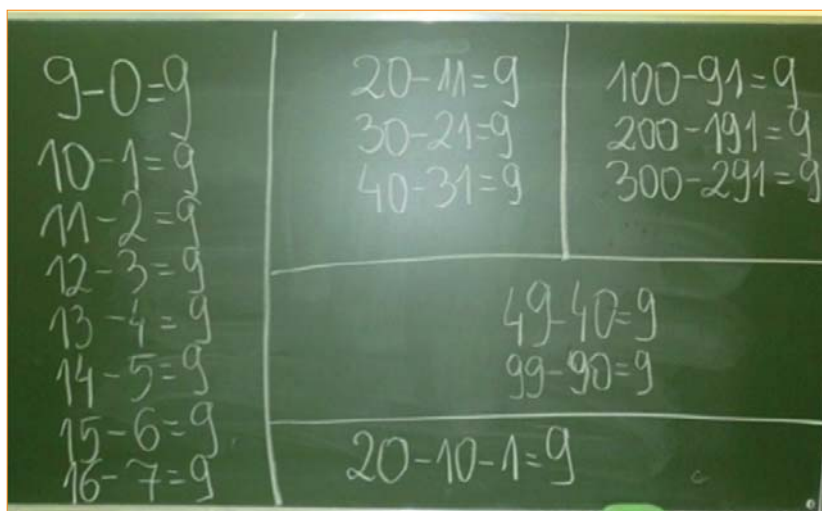 9-0=9
10-1=9
11-2=9
12-3=9
13-4=9
14-5=9
15-6=9
16-7=9
20-11=9
30-21=9
40-31=9
100-91=9
200-191=9
300-291=9
49-40=9
99-90=9
20-10-1=9